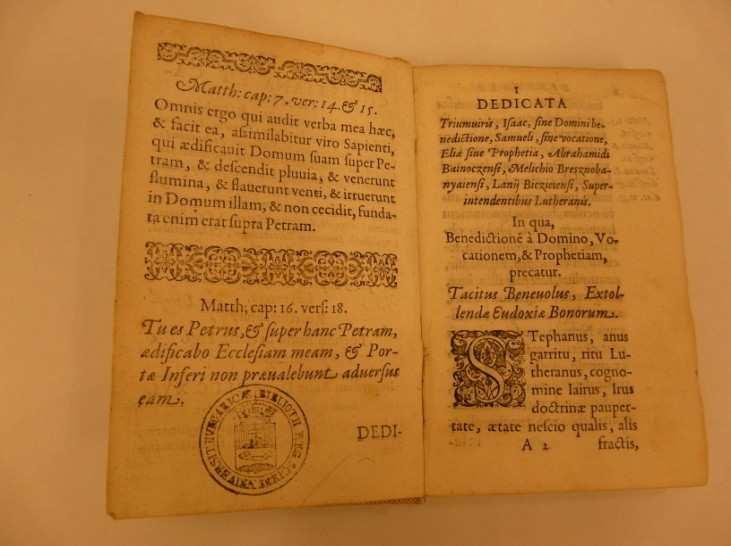 Matth: cap: 7. ver: 14. & 15.
Omnis ergo qui audit verba mea hæc,
& facit ea, assimilabitur viro Sapienti,
qui ædificauit Domum suam super Pe-
tram, & descendit pluuia, & venerunt
flumina, & flauerunt venti, & irruerunt
in Domum illam, & non cecidit, funda-
ta enim erat supra Petram.
Matth; cap: 16. vers: 18.
Tu es Petrus, & super hanc Petram,
ædificabo Ecclesiam meam, & Por-
tæ Inferi non prævalebunt adversus
eam.
DEDI-
1
DEDICATA
Triumuiris, Isaac, sine Domini be-
nedictione, Samueli, sine vocatione,
Eliæ sine Prophetia, Abrahamidi
Bainoczensi, Melichio Bresznoba-
nyaiensi, Lanij Biczieiensi, Super-
intendentibus Lutheranis.
In qua,
Benedictionē à Domino, Vo-
cationem, & Prophetiam,
precatur.
Tacitus Benevolus, Extol-
lendæ Eudoxiæ Bonorum.
STephanus, anus
garritu, ritu Lu-
theranus, cogno-
mine Iairus, Irus
doctrinæ pauper-
tate, ætate nescio qualis, alis
A 2 fractis,